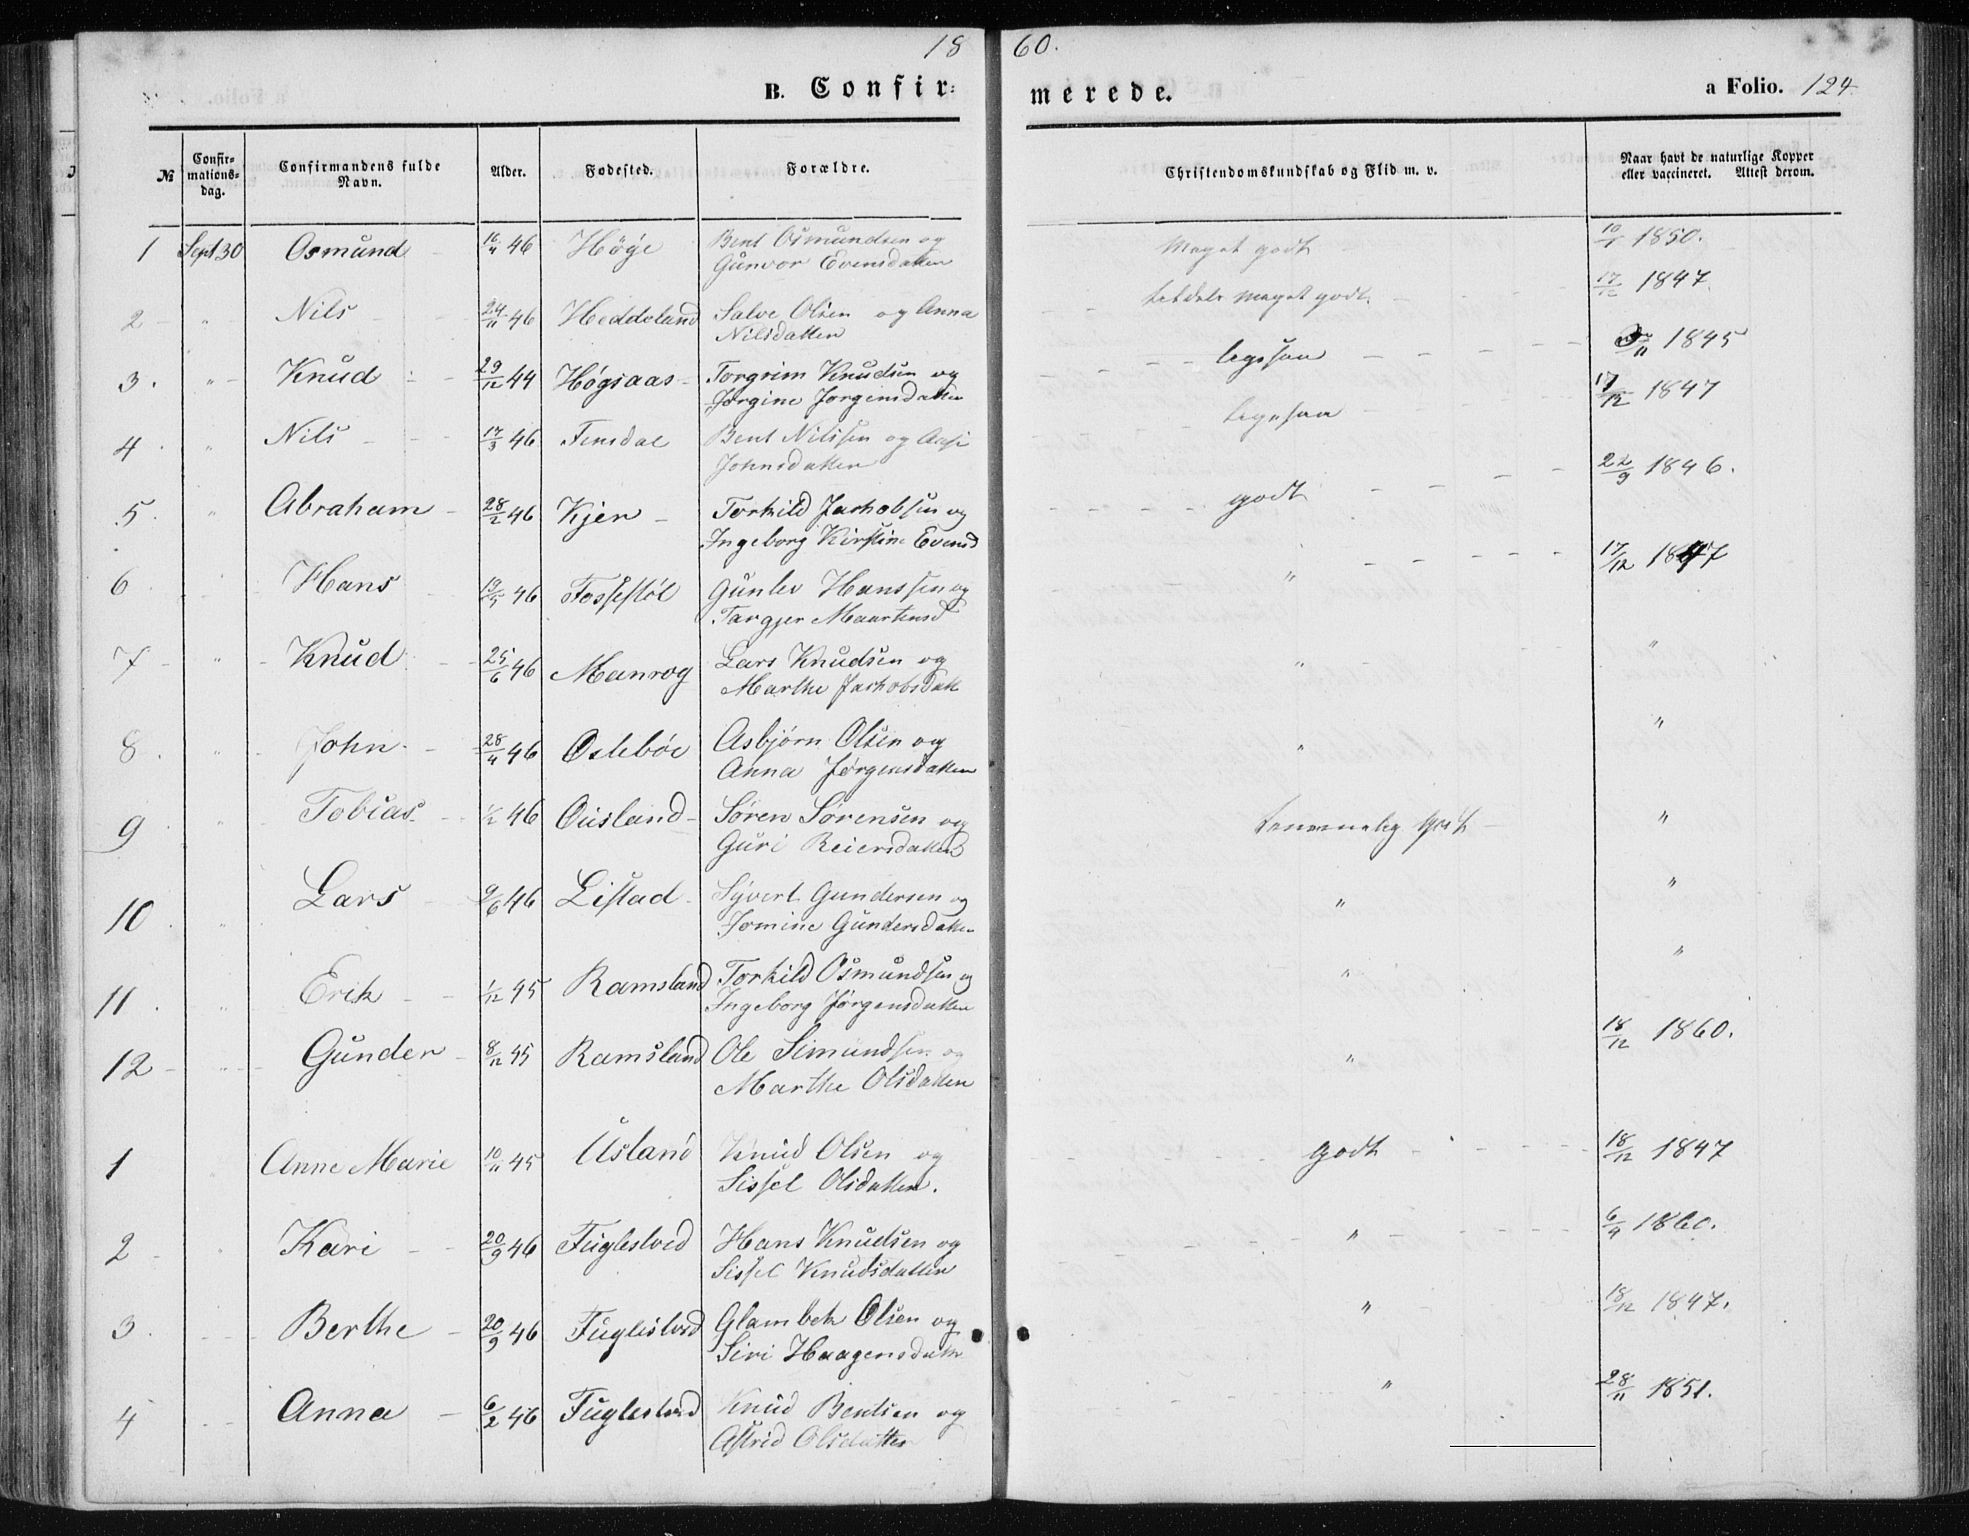 1860.
B. Confirmerede.
a Folio. 124
№ Confirmationsdag. Confirmandens fulde Navn. Alder. Fødested. Forældre. Christendomskundskab og Flid m. v. Naar havt de naturlige Kopper eller vaccineret. Attest derom.
1 Sept. 30 Osmund 16/4 46 Höge Bent Osmundsen og Gunvor Evensdatter Meget godt 1850.
2 " Nils 24/11 46 Heddeland Salve Olsen og Anna Nilsdatter meget godt. 17/12 1847
3. " Knud 29/12 44 Høgsaas Torgrim Knudsen og Jørgine Jørgensdatter ligesaa 1845
4 " Nils 17/3 46 Finsdal Bent Nilssen og Aase Johnsdatter ligesaa 17/12 1847
5. " Abraham 28/2 46 Kjer Torkild Jachobsen og Ingeborg Kirstine Evensd godt 22/9 1846.
6 Hans 19/5 46 Fossestöl Gunlev Hanssen og Targjer Maartensd " 17/12 1847
7 " Knud 25/6 46 Manrog Lars Knudsen og Marthe Jachobsdatt " "
8. " John 28/4 46 Oslebøe Asbjørn Olsen og Anna Jørgensdatter " "
9 " Tobias 1/2 46 Ousland Søren Sørensen og Guri Reiersdatter temmelig godt "
10 " Lars 9/6 46 Listad Syvert Gundersen og Jomine Gundersdatter " "
11. " Erik 1/12 45 Ramsland Torkild Osmundsen og Ingeborg Jørgensdatter " "
12 " Gunder 8/12 45 Ramsland Ole Simundsen og Marthe Olsdatter " 18/12 1860.
1 " Anne Marie 10/11 45 Usland Knud Olsen og Sissel Olsdatter. godt 18/12 1847
2 " Kari 20/9 46 Fuglestved Hans Knudsen og Sissel Knudsdatter " 6/4 1860.
3. Berthe 20/9 46 Fuglestved Glambek Olsen og Siri Haagensdatter " 18/12 1847.
4 Anna 6/2 46 Fuglestved Knud Bentsen og Astrid Olsdatter " 28/11 1851.